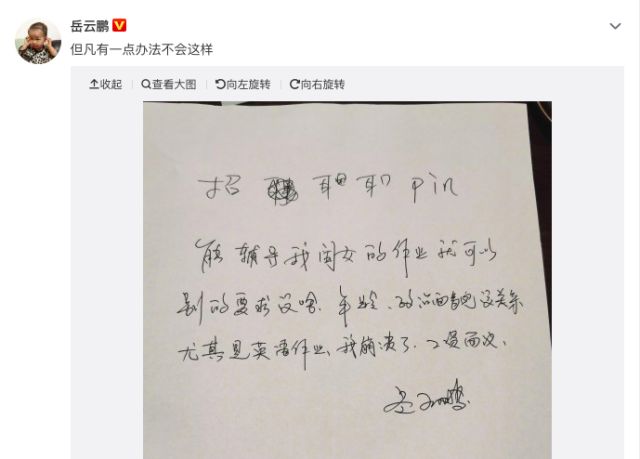 岳云鹏
但凡有一点办法不会这样
收起 查看大图 向左旋转 向右旋转
招 pin
能辅导我闺女的作业就可以
别的要求没啥. 年龄、政治面貌没关系
尤其是英语作业、我崩溃了. 工资面议.
岳云鹏.